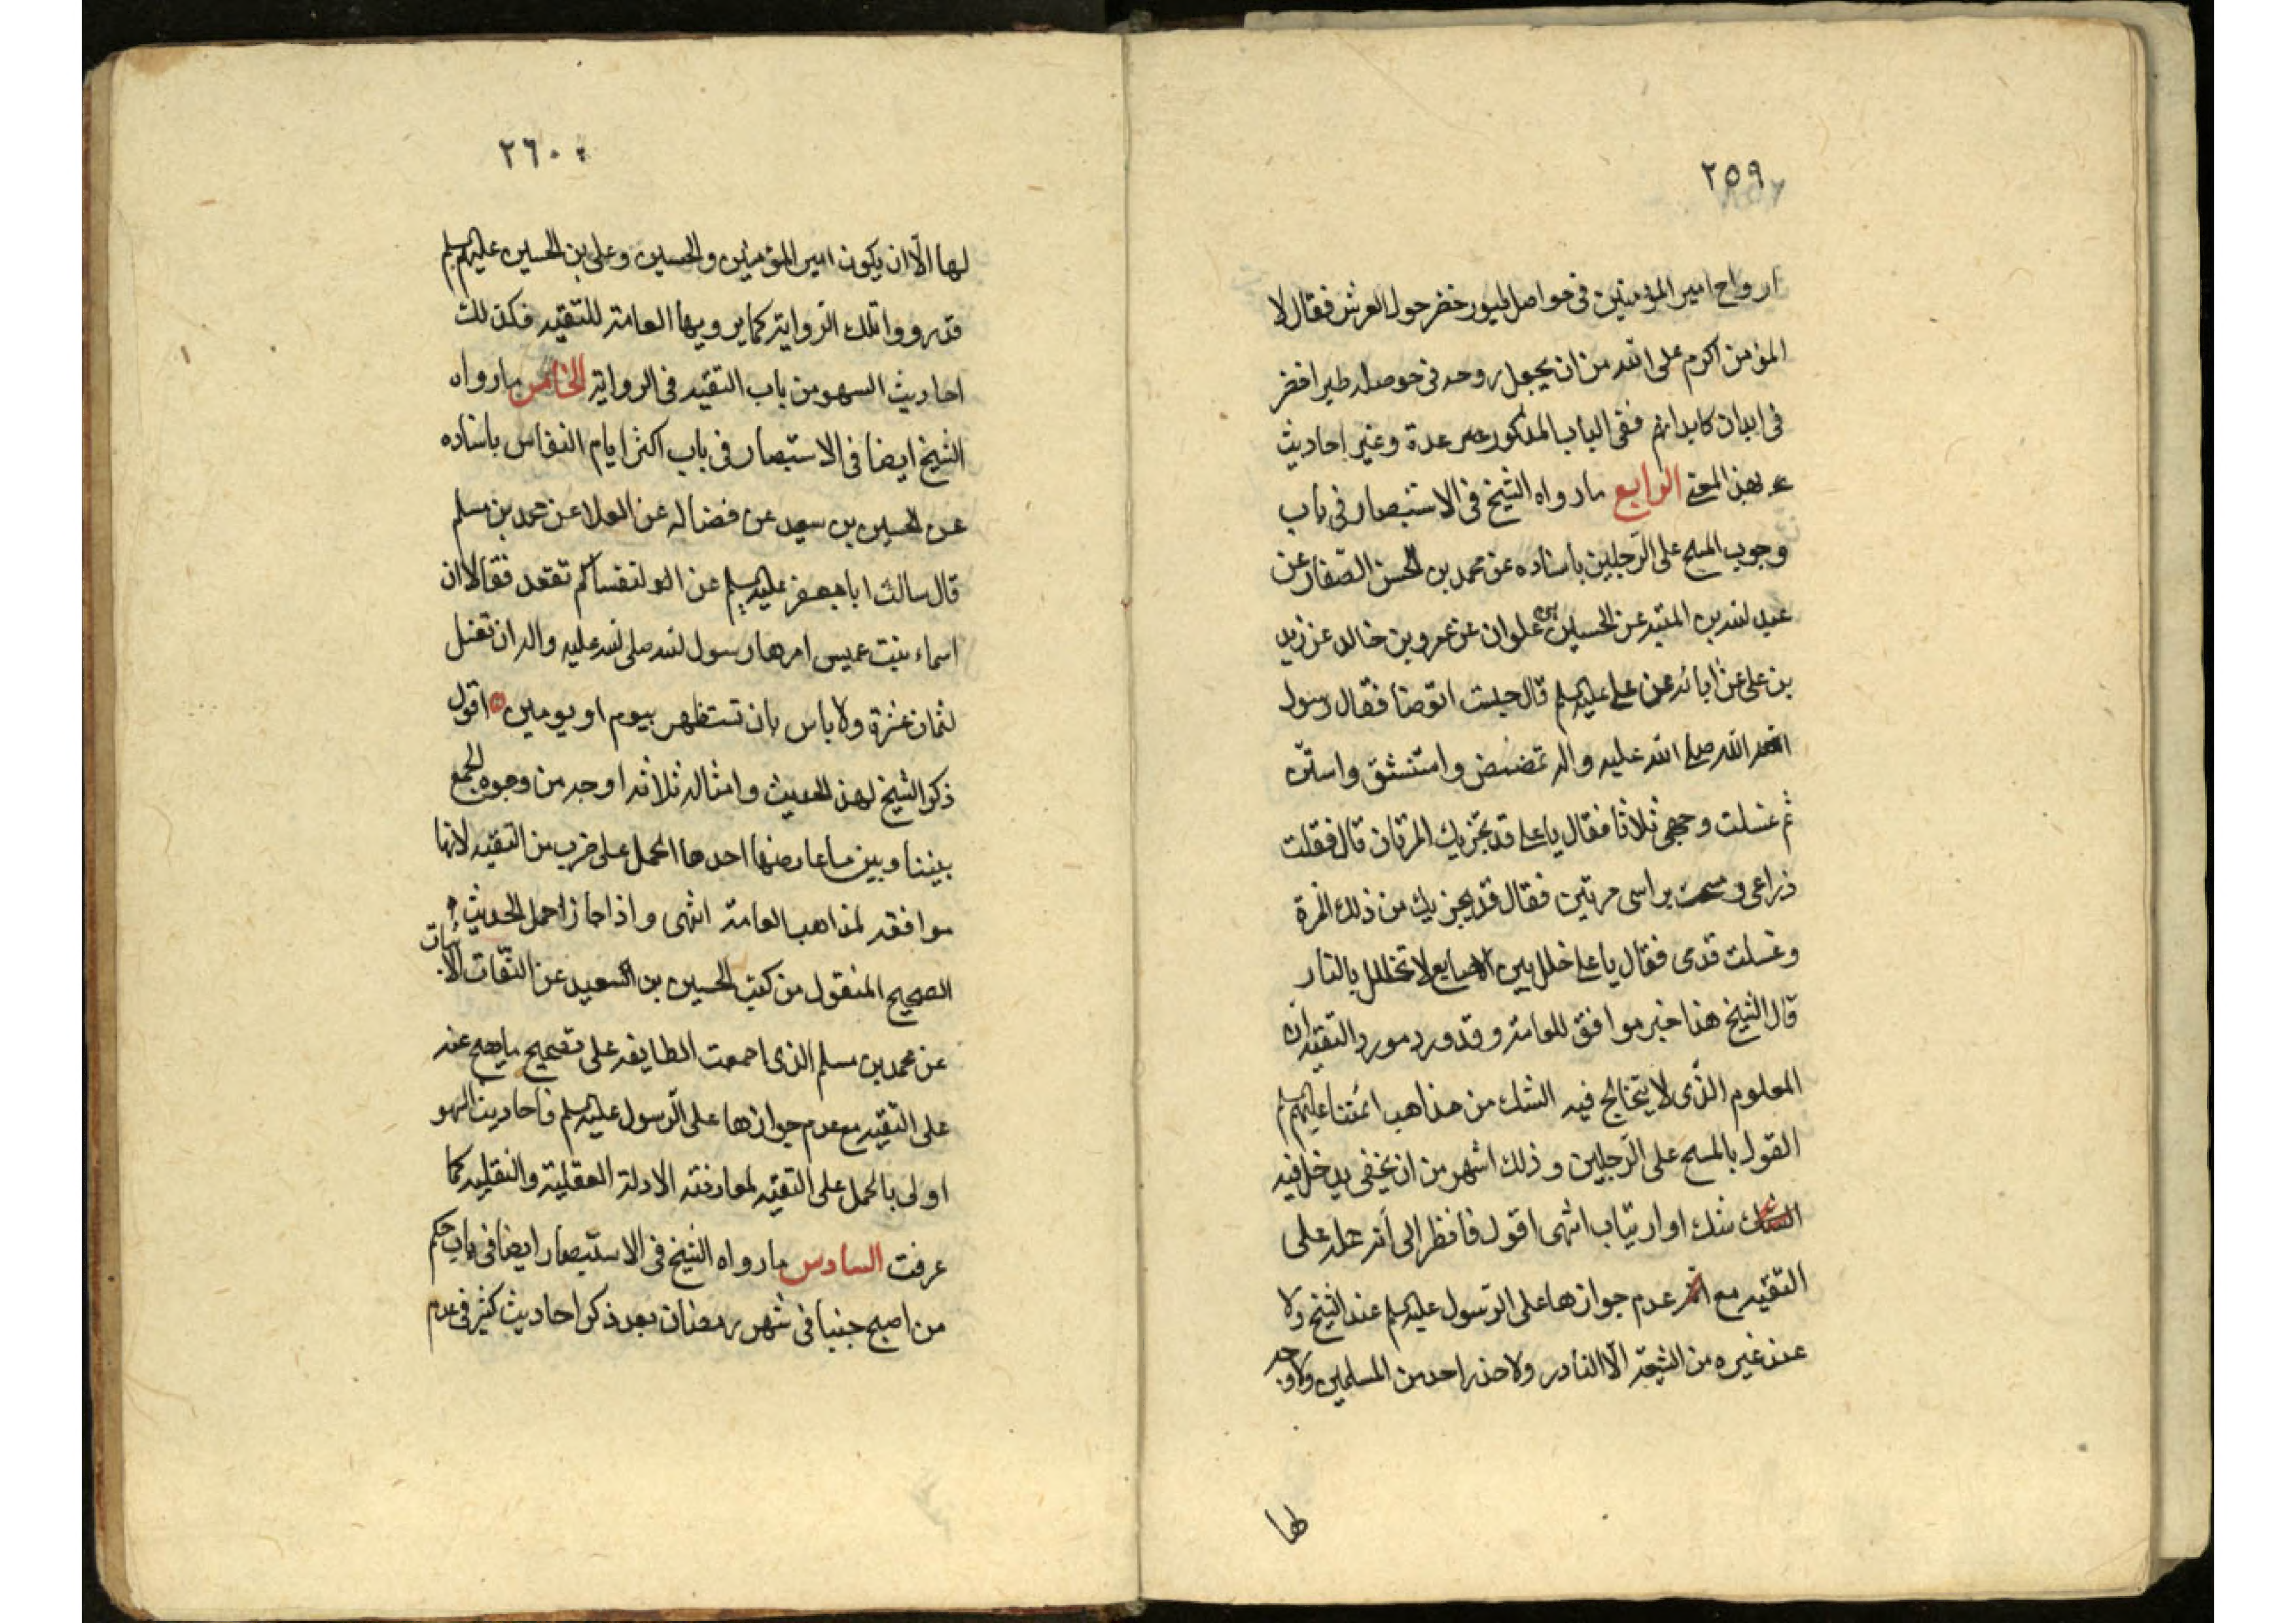 ٢٥٩
ارواح امير المؤمنين فى حواصل طيور خضر حول العرش فقال لا
المؤمن اكرم على الله من ان يجعل روحه فى حوصله طير اخضر
فى ابدان كابدانهم ففى الباب المذكور عدة وغير احاديث
بهذا المعنى الرابع مارواه الشيخ فى الاستبصار فى باب
وجوب المسح على الرّجلين باسناده عن محمد بن الحسن الصّفار عن
عبد الله بن المنبه عن الحسين بن علوان عن عمرو بن خالد عن زيد
بن على عن ابائه عن على عليه السلم قال جلست اتوضا فقال رسول
الله صلى الله عليه واله تمضمض واستنشق واستنّ
ثم غسلت وجهى ثلاثا فقال يا على قد يجزيك المرتان قال فغسلت
ذراعى ومسحت براسى مرتين فقال قد يجزيك من ذلك المرة
وغسلت قدمى فقال يا على خلل بين الاصابع لا تخلل بالنار
قال الشيخ هذا خبر موافق للعامة وقد ورد مورد التقيه لان
المعلوم الذى لا يتخالج فيه الشك من مذاهب ائمتنا عليهم السلم
القول بالمسح على الرّجلين وذلك اشهر من ان يخفى يدخل فيه
شك او ارتياب انتهى اقول فانظر الى انه حمله على
التقيه مع عدم جوازها على الرّسول عليه السلم عند الشيخ ولا
عند غيره من الشيعة الّا النادر ولا حذر احد من المسلمين ولا وجه
لها
٢٦٠
لها الّا ان يكون امير المؤمنين والحسين وعلى بن الحسين عليهم السلم
قد رووا تلك الروايتر كما يرويها العامة للتقيه فكذلك
احاديث السهو من باب التقيه فى الروايتر الخامس مارواه
الشيخ ايضا فى الاستبصار فى باب اكثر ايام النفاس باسناده
عن الحسين بن سعيد عن فضاله عن العلا عن محمد بن مسلم
قال سالت ابا جعفر عليه السلم عن النفساء كم تقعد فقال ان
اسماء بنت عميس امرها رسول الله صلى الله عليه واله ان تغتسل
لثمان عشرة ولا باس بان تستظهر بيوم او يومين اقول
ذكر الشيخ لهذا الحديث وامثاله ثلاثه اوجه من وجوه الجمع
بيننا وبين ما عارضها احدها الحمل على ضرب من التقيه لانها
موافقه لمذاهب العامة انتهى واذا جاز حمل الحديث
الصحيح المنقول من كتب الحسين بن السعيد عن الثقات الاثبات
عن محمد بن مسلم الذى اجمعت الطايفه على تصحيح ما يصح عنه
على التقيه مع عدم جوازها على الرّسول عليه السلم فاحاديث السهو
اولى بالحمل على التقيه لمعارضة الادلة العقلية والنقليه كما
عرفت السادس مارواه الشيخ فى الاستبصار ايضا فى باب حكم
من اصبح جنبا فى شهر رمضان بعد ذكر احاديث كثير فى عدم